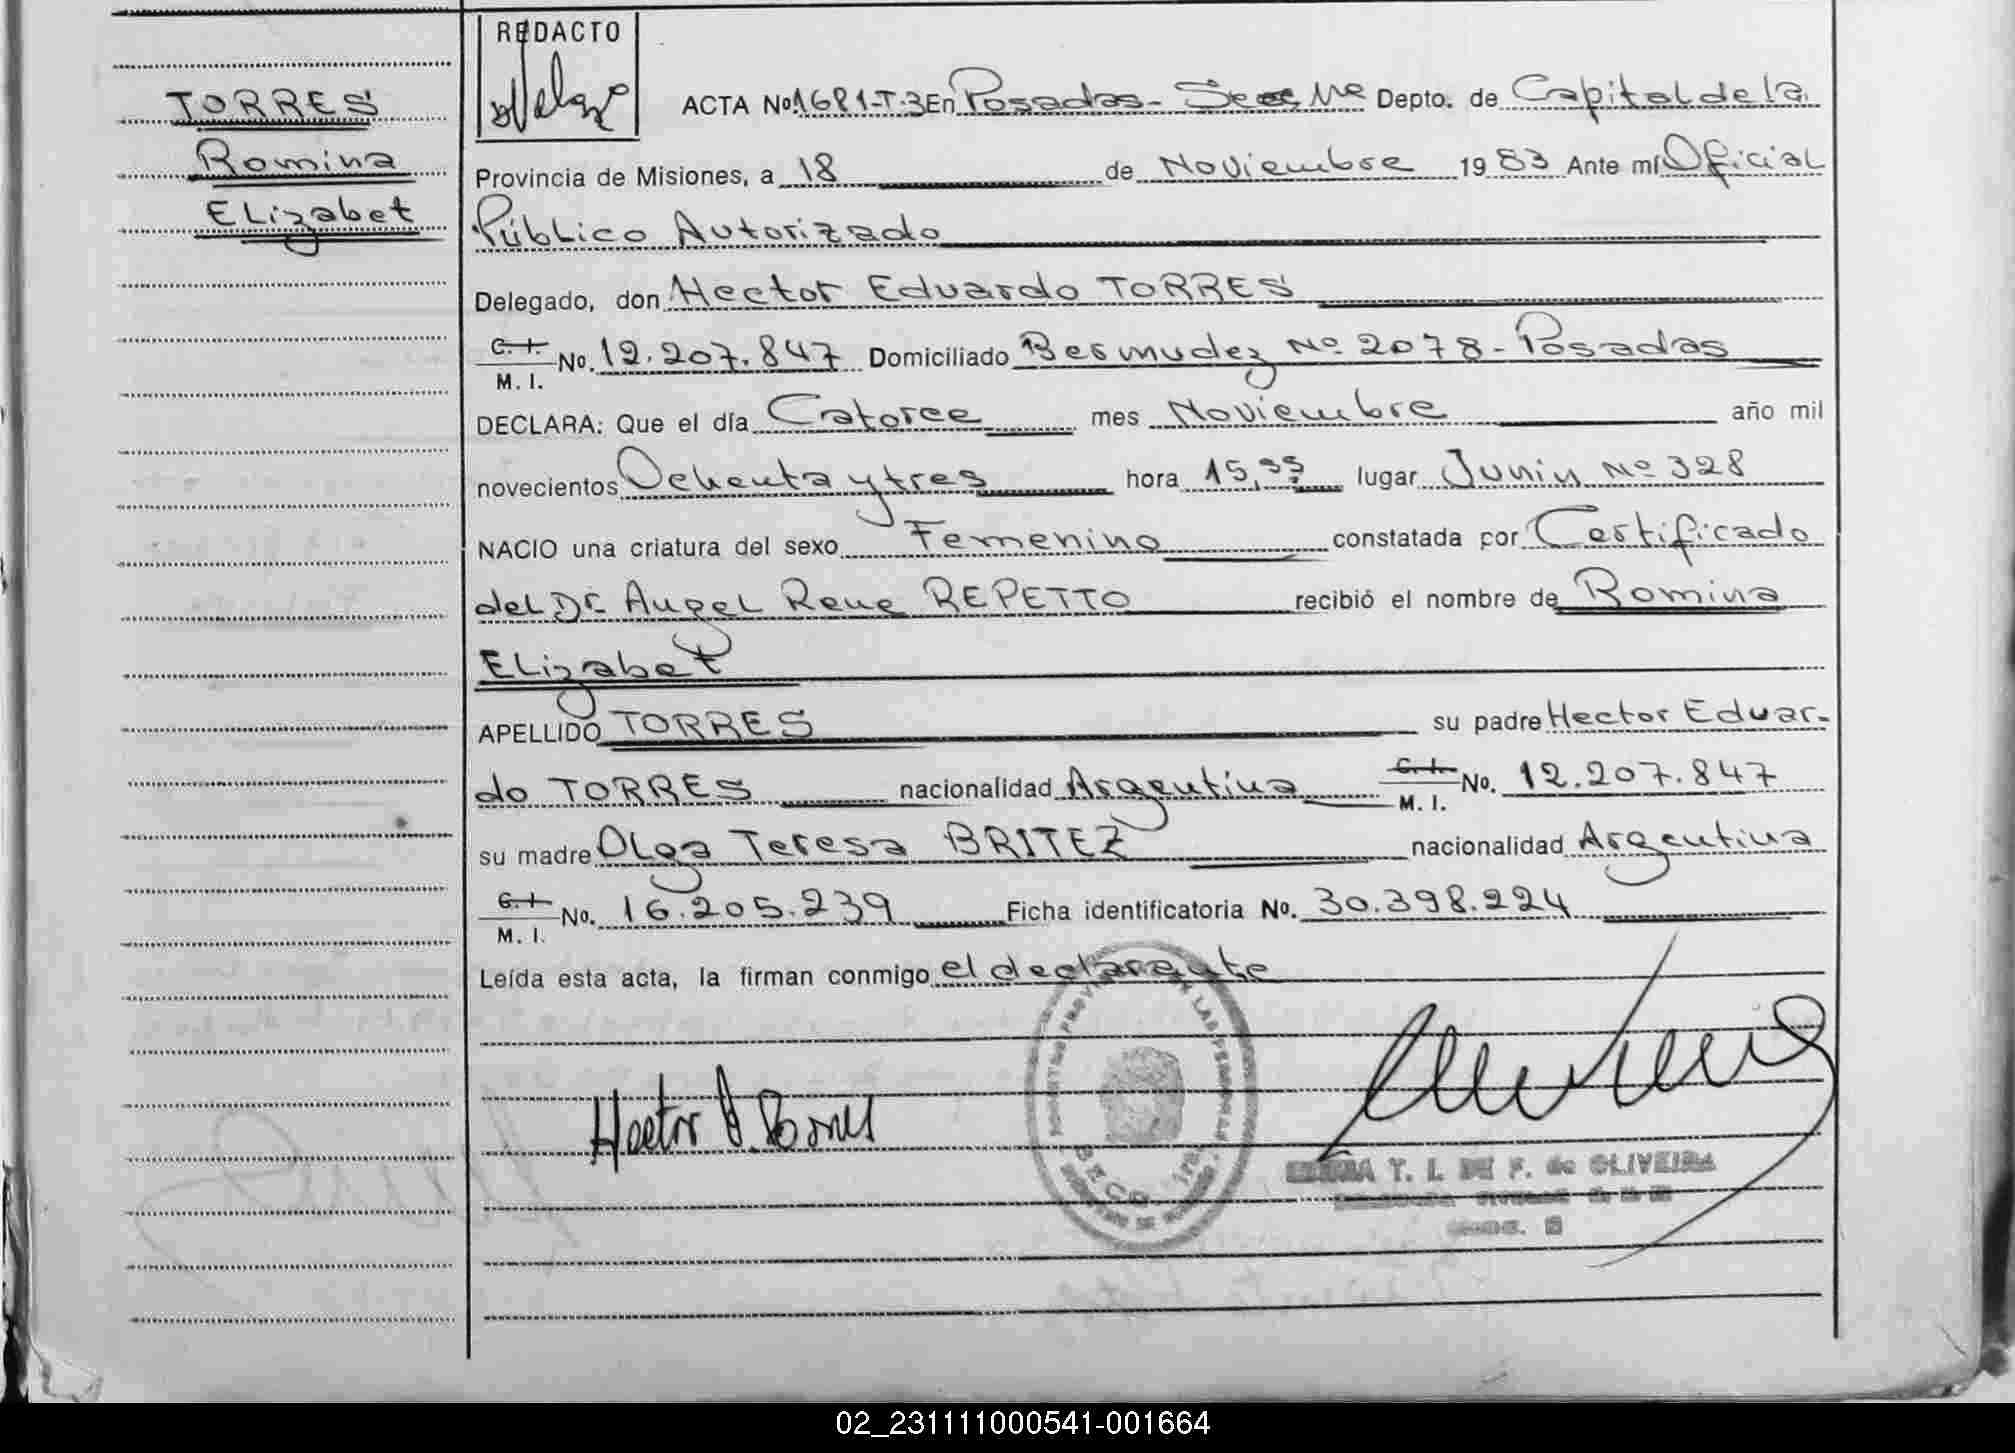 REDACTO
TORRES
Romina
Elizabet
ACTA No 1681-T-3 En Posadas - Depto. de Capital de la
Provincia de Misiones, a 18 de Noviembre 19 83 Ante mí Oficial
Público Autorizado
Delegado, don Hector Eduardo TORRES
C. I. M. I. No. 12.207.847 Domiciliado Bermudez No 2078 - Posadas
DECLARA: Que el día Catorce mes Noviembre año mil
novecientos Ochenta y tres hora 15,35 lugar Junin No 328
NACIO una criatura del sexo Femenino constatada por Certificado
del Dr. Angel Rene REPETTO recibió el nombre de Romina
Elizabet
APELLIDO TORRES su padre Hector Eduar-
do TORRES nacionalidad Argentina C. I. M. I. No. 12.207.847
su madre Olga Teresa BRITEZ nacionalidad Argentina
C. I. M. I. No. 16.205.239 Ficha identificatoria No. 30.398.224
Leída esta acta, la firman conmigo el declarante
Hector Torres
T. I. DE F. de OLIVEIRA
02_231111000541-001664